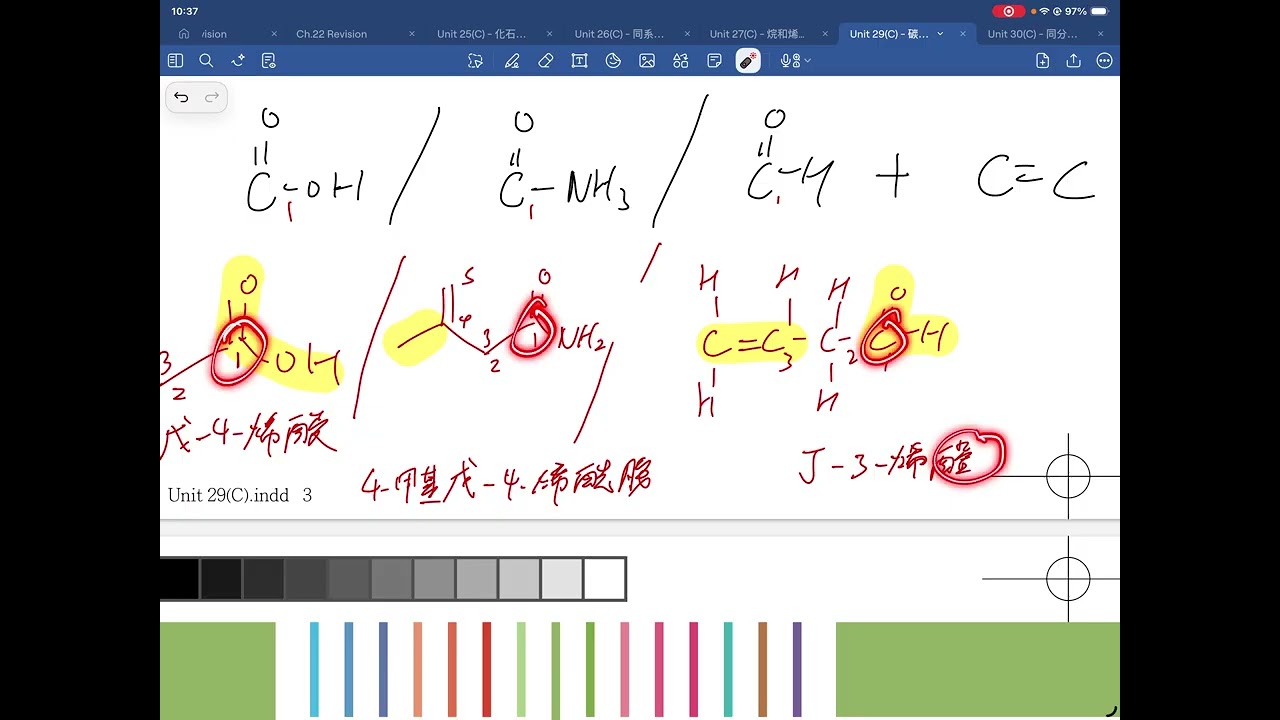 10:37 97%
vision Ch.22 Revision Unit 25(C) - 化石... Unit 26(C) - 同系... Unit 27(C) - 烷和烯... Unit 29(C) - 碳... Unit 30(C) - 同分...
O O O
C-OH / C-NH3 / C-H + C=C
1 1 1
O 5 O H H H O
3 2 1 OH / 4 3 2 1 NH2 / C=C3-C2-C-H
H H
戊-4-烯酸
4-甲基戊-4-烯酰胺
丁-3-烯醛
Unit 29(C).indd 3